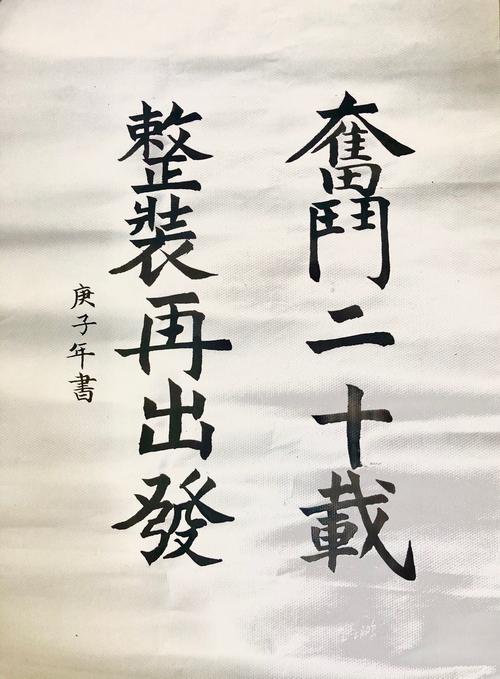 奮鬥二十載
整裝再出發
庚子年書